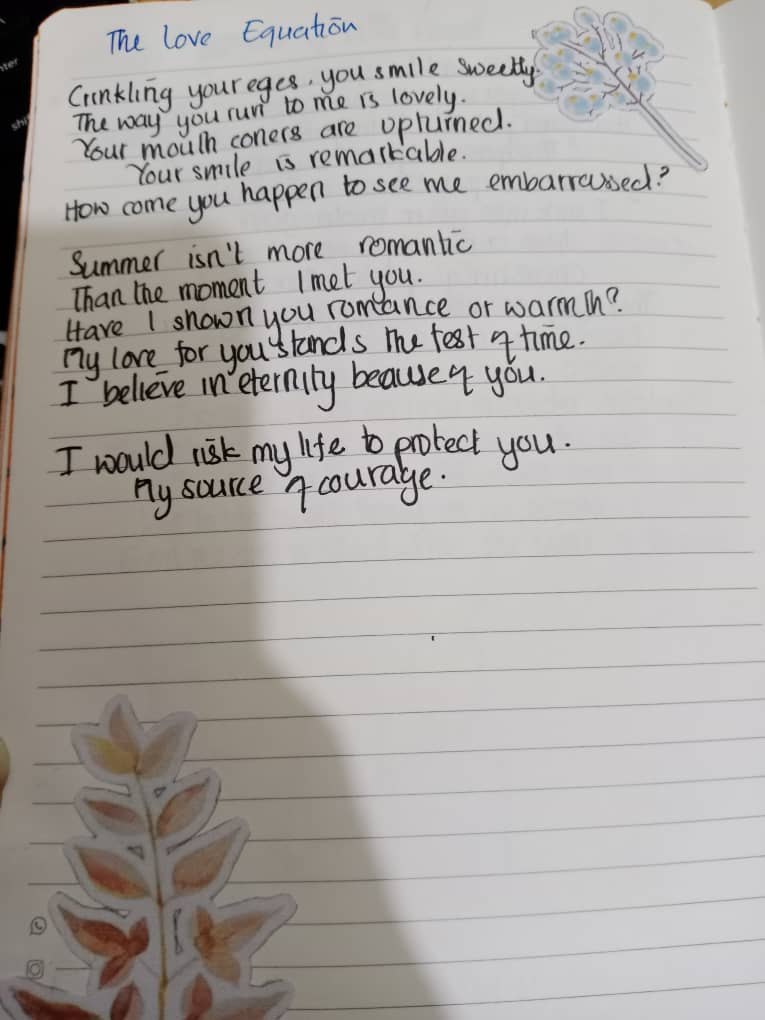 The Love Equation
Crinkling your eyes, you smile sweetly.
The way you run to me is lovely.
Your mouth coners are upturned.
Your smile is remarkable.
How come you happen to see me embarrassed?
Summer isn't more romantic
Than the moment I met you.
Have I shown you romance or warmth?
My love for you stands the test of time.
I believe in eternity beause of you.
I would risk my life to protect you.
My source of courage.